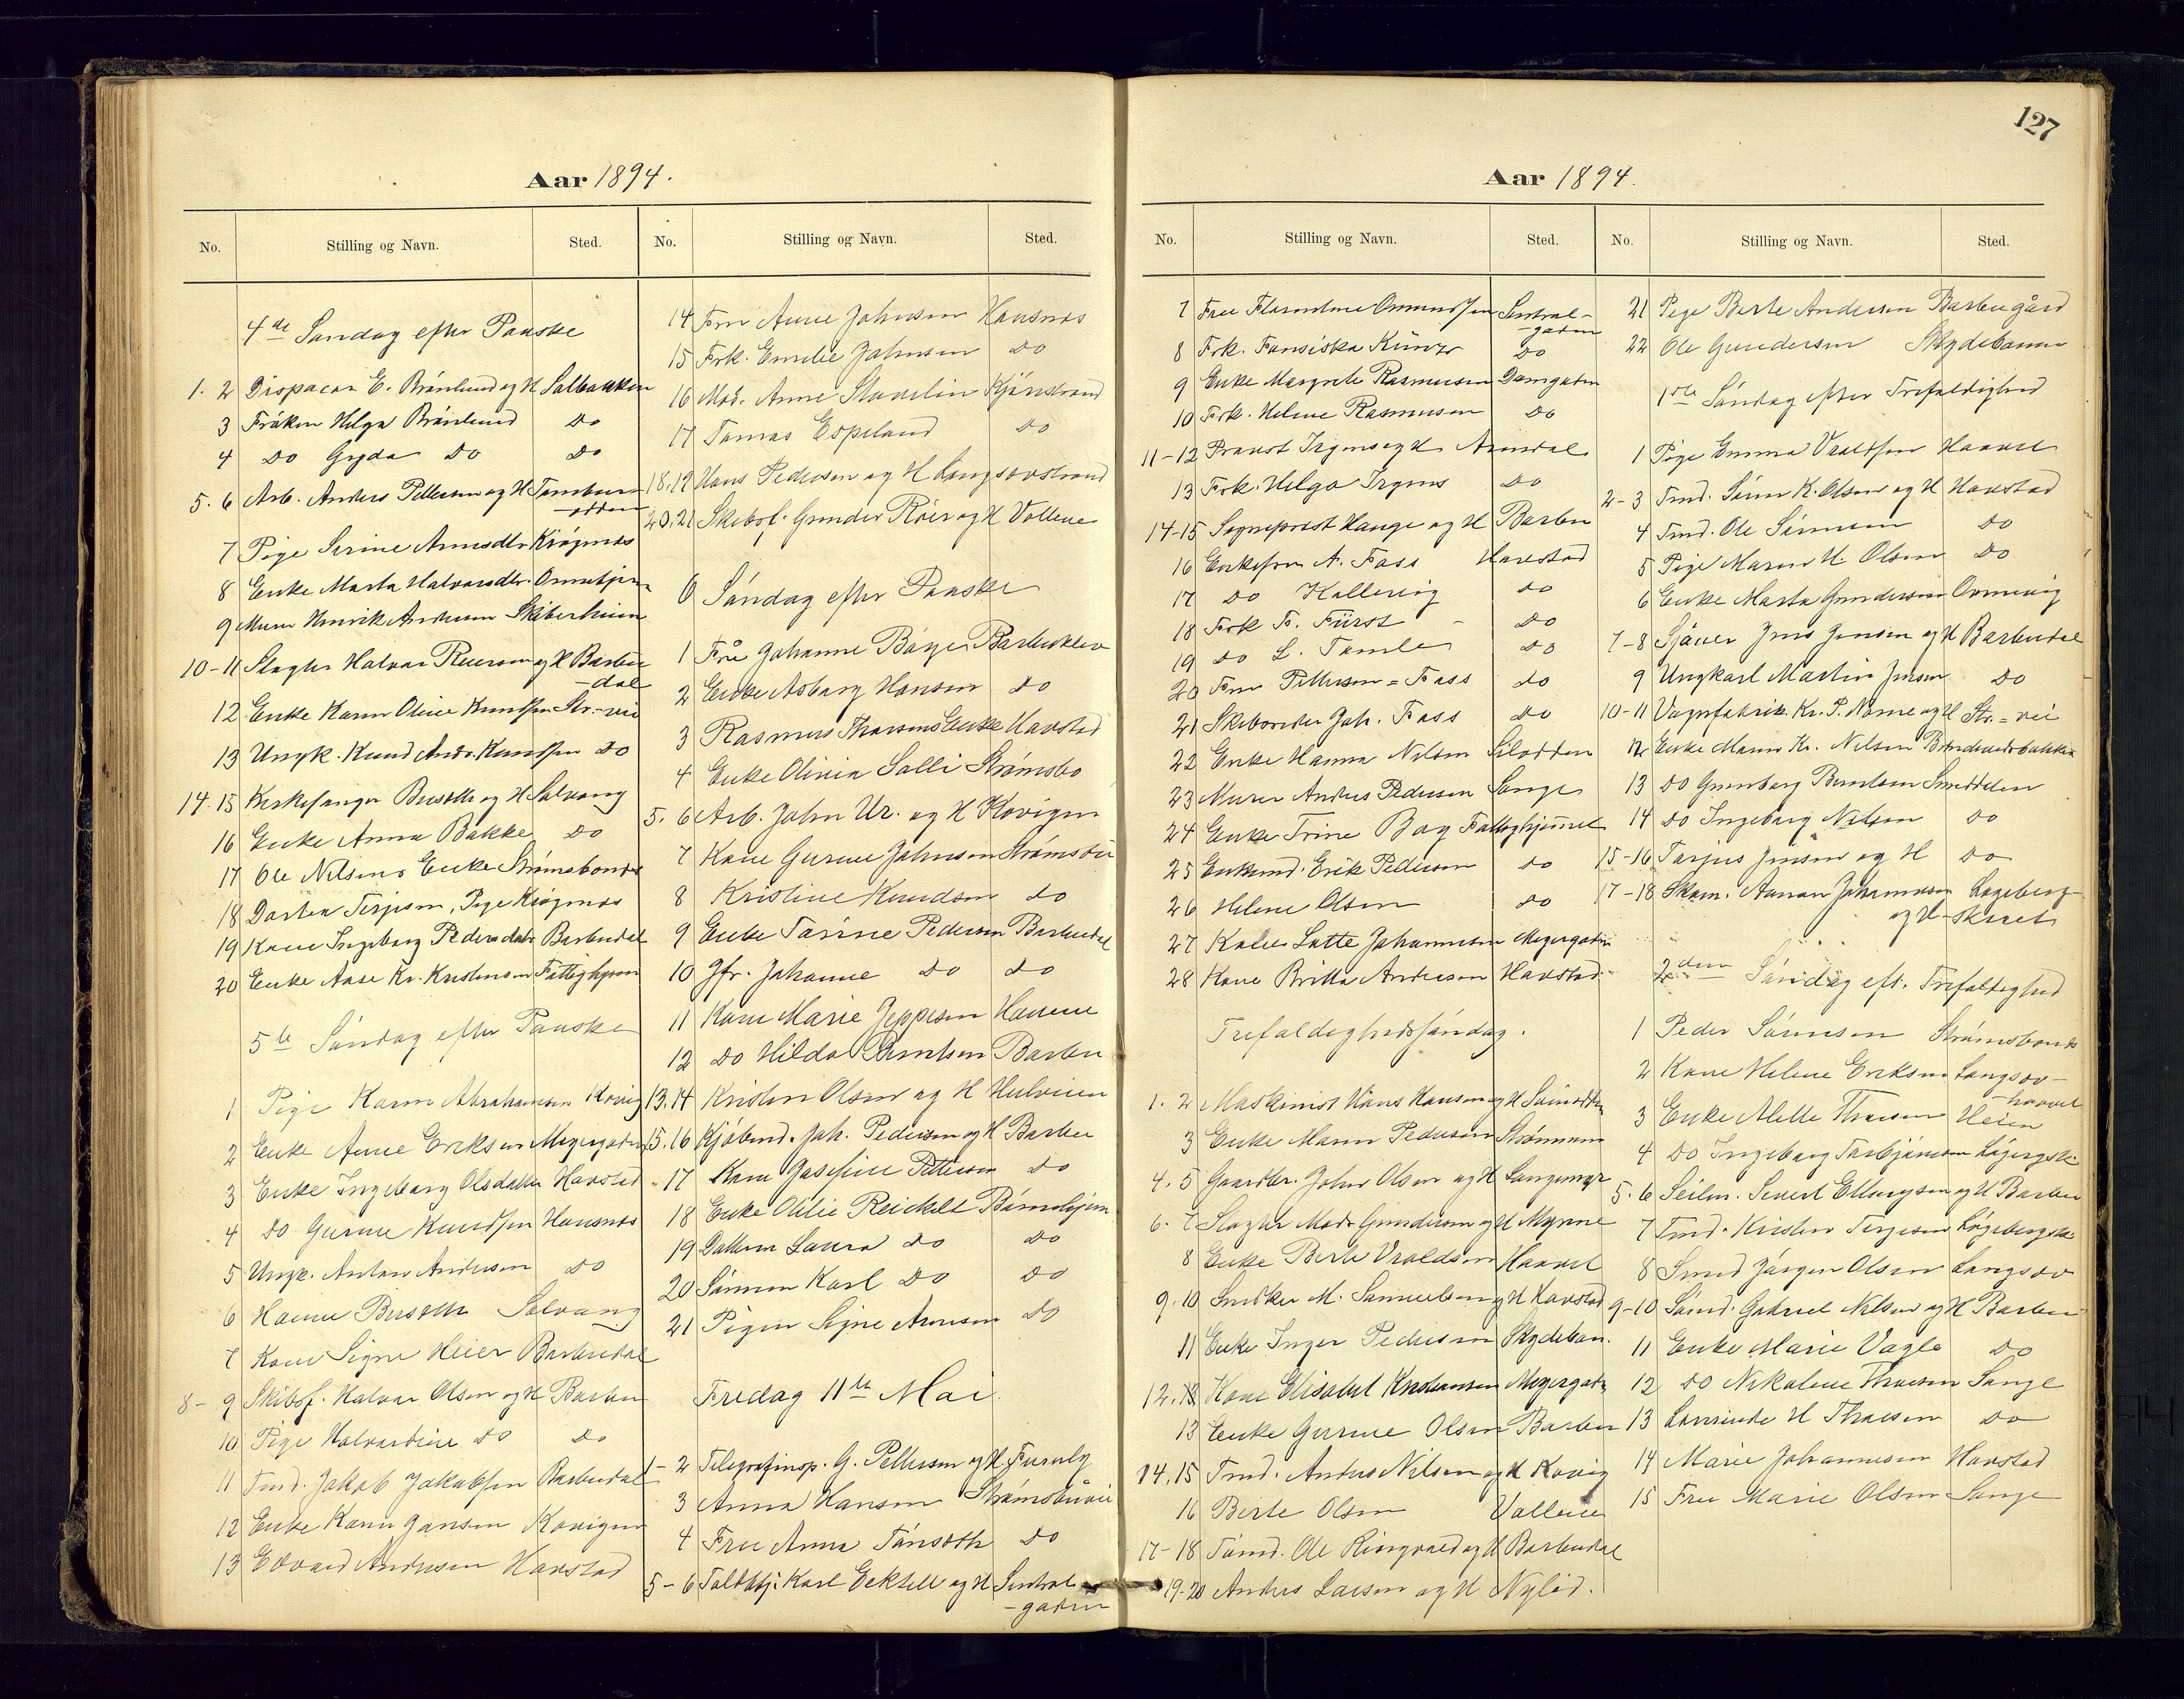 127
Aar 1894.
No. Stilling og Navn. Sted. No. Stilling og Navn. Sted.
4de Søndag efter Paaske
1. 2 Dispacør E. Brönlund og H Solbakken
3 Frøken Helga Brönlund do
4 do Gyda do do
5. 6 Arb. Anders Pettersen og H Tambur
-odden
7 Pige Serine Arnesdtr Krøgenæs
8 Enke Marta Halvorsdtr.
9 Murer Henrik Andersen Skiberheien
10-11 Slagter Halvor Reiersen og H Barbu
-dal
12 Enke Karen Oline Knudsen Str.-vei
13 Ungk. Knud Andr. Knudsen do
14. 15 Kirkesanger og H Solvang
16 Enke Anna Bakke do
17 Ole Nilsens Enke Strømsbonæs
18 Dortea Terjesen, Pige Krøgenæs
19 Kone Ingeborg Pedersdatr Barbudal
20 Enke Aase Kr. Kristensen Fattighjem
5te Søndag efter Paaske
1 Pige Karen Abrahamsen Kovig
2 Enke Anne Eriksen Meyergaden
3 Enke Ingeborg Olsdatter Havstad
4 do Gurine Knudsen Hansnæs
5 Ungk. Anton Andersen do
6 Hanne Solvang
7 Kone Signe Heier Barbudal
8 - 9 Skibsf. Halvor Olsen og H Barbu
10 Pige Halvardine do do
11 Tmd. Jakob Jakobsen Barbudal
12 Enke Karen Jansen Kovigen
13 Edvard Andersen Havstad
14 Fru Anne Johnsen Hansnæs
15 Frk. Emilie Johnsen do
16 Mad. Anne Stavelin Kjønstrand
17 Tomas Espeland do
18.19 Hans Pedersen og H Langsævstrand
20.21 Skibsf. Gunder Röer og H Vollene
6 Søndag efter Paaske
1 Fru Johanne Børge Barbuklev
2 Enke Asborg Hansen do
3 Rasmus Thorsens Enke Havstad
4 Enke Olivia Solli Strømsbo
5. 6 Arb. John Ur. og H Kovigen
7 Kone Gurine Johnsen
8 Kristine Knudsen do
9 Enke Tarine Pedersen Barbudal
10 Jfr. Johanne do do
11 Kone Marie Jeppesen Havene
12 do Hilda Berntsen Barbu
13.14 Kristen Olsen og H Hulveien
15.16 Kjöbmd. Joh. Pedersen og H Barbu
17 Kone Josefine Pettersen do
18 Enke Otilie Reickelt Børnehjem
19 Datteren Laura do do
20 Sønnen Karl do do
21 Pigen Signe Arnesen do
Fredag 11te Mai
1 - 2 Telegrafinsp. G. Pettersen og H Furuly
3 Anna Hansen Strømsbuvei
4 Fru Anna Tönseth do
5 - 6 Toldbtj. Karl Eektell og H Sentral
-gaden
Aar 1894.
No. Stilling og Navn. Sted. No. Stilling og Navn. Sted.
7 Fru Florentine Omundsen Sentral-
-gaden
8 Frk. Fansiska Künzr do
9 Enke Margrete Rasmussen Damgaden
10 Frk. Helene Rasmussen do
11-12 Provst Irgens og H Arendal
13 Frk. Helga Irgens do
14-15 Sogneprest Hauge og H Barbu
16 Enkefru A. Foss Havstad
17 do Kallevig do
18 Frk F. Fürst do
19 do L. Tamle do
20 Fru Pettersen = Foss do
21 Skibsreder Joh. Foss do
22 Enke Hanna Nilsen Silodden
23 Murer Anders Pedersen Songe
24 Enke Trine Boy Fattighjemmet
25 Enkemd. Erik Pedersen do
26 Helene Olsen do
27 Kone Lotte Johannesen Meyergaden
28 Kone Britta Andersen Havstad
Trefoldighedssøndag.
1. 2 Maskinist Hans Hansen og H Svinodden
3 Enke Maren Pedersen Strømmen
4. 5 Gaardbr. John Olsen og H Longumyr
6. 7 Slagter Mads Gundersen og H Myrene
8 Enke Berte Vraldsen Haavet
9. 10 Snedker M. Samuelsen og H Havstad
11 Enke Inger Pedersen Skydeban.
12. 13 Kone Elisabet Kristiansen Meyergaden
13 Enke Gurine Olsen Barbu
14. 15 Tmd. Anders Nilsen og H Kovig
16 Berte Olsen Vollene
17-18 Tømd. Ole Ringvold og H Barbudal
19-20 Anders Larsen og H Nylød.
21 Pige Berte Andersen Barbugård
22 Ole Gundersen Skydebanen
1ste Søndag efter Trefoldighed
1 Pige Emma Vraldsen Haavet
2-3 Tmd. Søren K. Olsen og H Havstad
4 Tmd. Ole Sørensen do
5 Pige Maren H. Olsen do
6 Enke Marta Gundersen Ormevig
7-8 Sjåuer Jens Jensen og H Barbudal
9 Ungkarl Martin Jensen do
10-11 Vognfabrik. Kr. P. Nome og H Str. = vei
12 Enke Maren Kr. Nilsen
13 do Gunborg Berntsen Smeddelen
14 do Ingeborg Nilsen do
15-16 Tarjus Jensen og H do
17-18 Skom. Aanon Johannesen Løgeberg
og H -skaret
2den Søndag eft. Trefoldighed
1 Peder Sørensen Strømsbonæs
2 Kone Helene Eriksen Langsæv-
-haavet
3 Enke Alette Thorsen Heien
4 do Ingeborg Torbjørnsen
5. 6 Seilm. Severt Ellingsen og H Barbu
7 Tmd. Kristen Terjesen
8 Smed Jørgen Olsen Langsæv
9-10 Sømd. Gabriel Nilsen og H Barbu
11 Enke Marie Vagle do
12 do Nikoline Thorsen Songe
13 Lovrinde H Thorsen do
14 Marie Johannesen Havstad
15 Fru Marie Olsen Songe